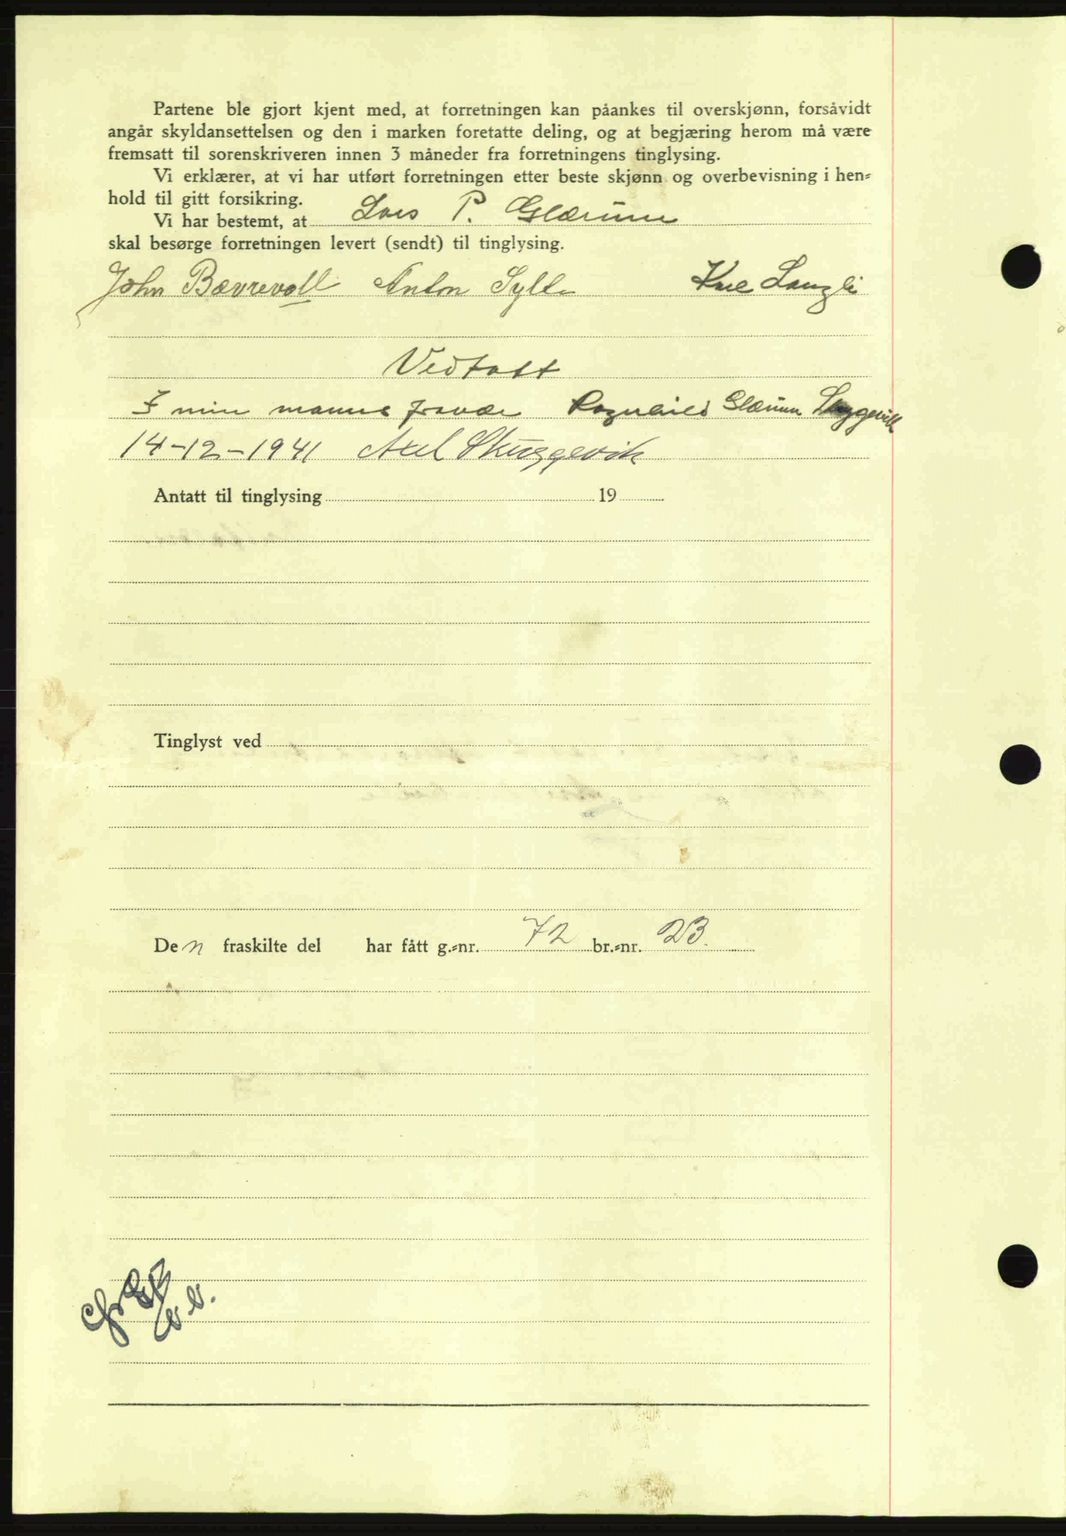 Partene ble gjort kjent med, at forretningen kan påankes til overskjønn, forsåvidt
angår skyldansettelsen og den i marken foretatte deling, og at begjæring herom må være
fremsatt til sorenskriveren innen 3 måneder fra forretningens tinglysing.
Vi erklærer, at vi har utført forretningen etter beste skjønn og overbevisning i hen=
hold til gitt forsikring.
Vi har bestemt, at Lars P. Glærum
skal besørge forretningen levert (sendt) til tinglysing.
John Bævrevoll Anton Sylte Kare Langli
Vedtatt
I min manns fravær Ragnhild Glærum Skuggevik
14-12-1941 Axel Skuggevik
Antatt til tinglysing 19
Tinglyst ved
De n fraskilte del har fått g.=nr. 72 br.=nr. 23.